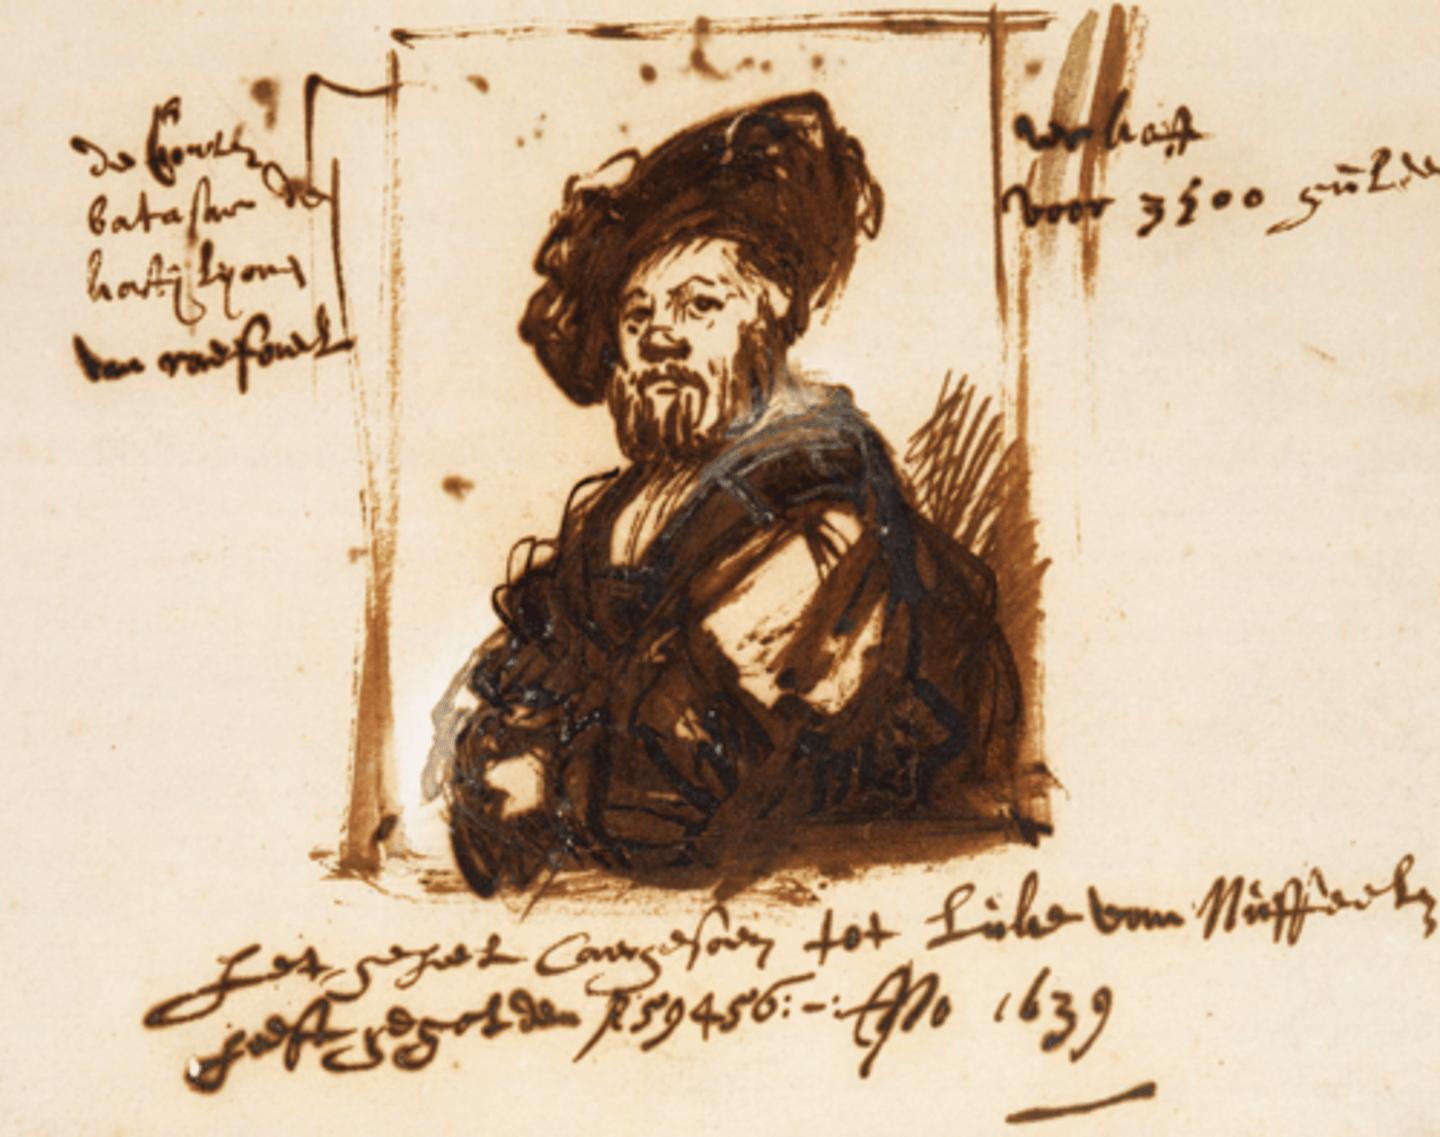 de Conte
batasar de
kastijlijone
van raefael
verkoft
voor 3500 gulde
het geheel Caergesoen tot Luke van Nuffeelen
heeft gegolden f 59456:-: Ano 1639